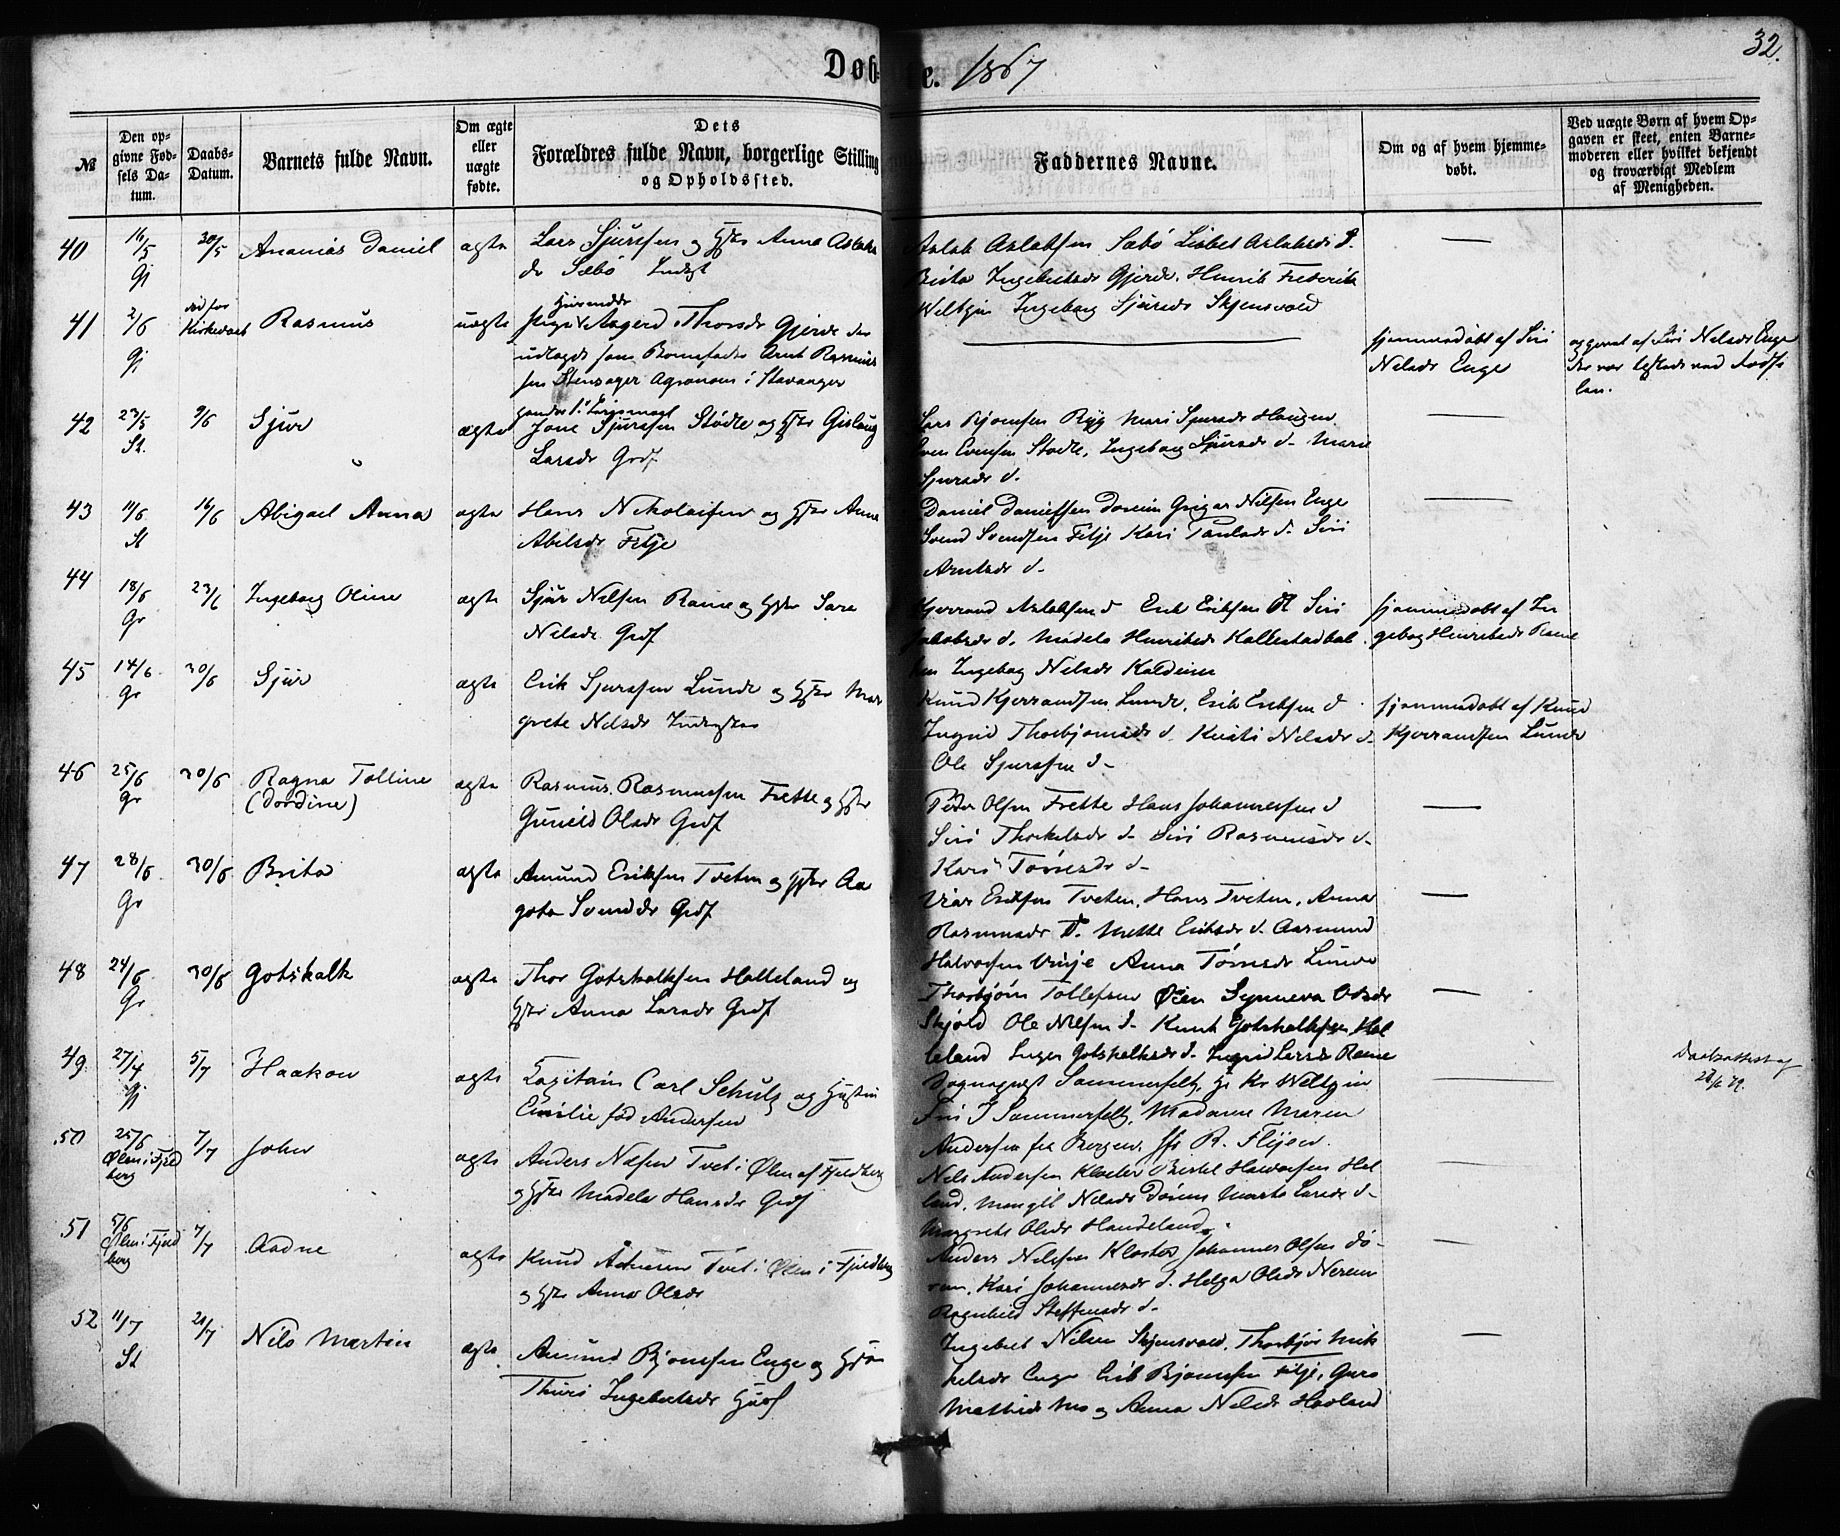 Døbte. 1867
32.
№
Den op-
givne Fød-
sels Da-
tum.
Daabs-
Datum.
Barnets fulde Navn.
Om ægte
eller
uægte
fødte.
Dets
Forældres fulde Navn, borgerlige Stilling
og Opholdssted.
Faddernes Navne.
Om og af hvem hjemme-
døbt.
Ved uægte Børn af hvem Op-
gaven er skeet, enten Barne-
moderen eller hvilket bekjendt
og troværdigt Medlem
af Menigheden.
40
16/5
Gj
30/5
Ananias Daniel
ægte
Lars Sjursen og Hstr Anna Aslaks
dr Sæbö Indst
Aslak Aslaksen Sæbö Lisbet Aslaksdr d.
Brita Ingebrektsdr Gjerde. Henrik Frederik
Weltzin Ingeborg Sjursdr Skjensvold
41
2/6
Gj
død før
Kirkedaab
Rasmus
uægte
Pige Aagerd Thorsdr Gjerde der
udlagde som Barnefader Arnt Rasmus
sen Stensager Agronom i Stavanger
hjemmedøbt af Siri
Nelsdr Enge
opgivet af Siri Nelsdr Enge
der var tilstede ved Fødse
len.
42
23/5
St.
9/6
Sjur
ægte
Jone Sjursen Stødle og Hstr Gislaug
Larsdr Grdf
Lars Bjørnsen Ryg Mari Sjursdr Haugen
Sven Evensen Stødle, Ingeborg Sjursdr d. Mari
Sjursdr d.
43
11/6
St
16/6
Abigael Anna
ægte
Hans Nikolaisen og Hstr Anna
Abelsdr Fitje
Daniel Danielsen Dommen Gregar Nilsen Enge
Svend Svendsen Fitje Kari Paulsdr d. Siri
Arntsdr d.
44
18/6
Gr
23/6
Ingeborg Oline
ægte
Sjur Nelsen Rame og Hstr Sara
Nelsdr. Grdf
Kjerrand Aslaksen d Erik Eriksen Siri
Jakobsdr d. Madela Henriksdr Kallestadbak
ken Ingeborg Nelsdr
hjemmedøbt af In
geborg Henriksdr Rame
45
14/6
Gr
30/6
Sjur
ægte
Erik Sjursen Lunde og Hstr Mar
grete Nelsdr Inderster
Knud Kjerrandsen Lunde, Erik Eriksen d
Ingrid Thorbjørnsdr d. Kristi Nelsdr d.
Ole Sjursen d
hjemmedøbt af Knud
Kjerrandsen Lunde
46
25/6
Gr
30/6
Ragna Tolline
(Dordine)
ægte
Rasmus Rasmussen Frette og Hstr
Gunild Olsdr Grdf
Peder Olsen Frette Hans Johannessen d
Siri Thorkelsdr d. Siri Rasmusdr d.
Kari Tørresdr d
47
28/6
Gr
30/6
Brita
ægte
Amund Eriksen Tveten og Hstr Aa
gota Svendsdr Grdf
Vier Eriksen Tveten, Hans Tveten, Anna
Rasmusdr d. Mette Eriksdr d. Aasmund
Halvorsen Vinje Anna Tørresdr Lunde
48
24/6
Gr
30/6
Gotskalk
ægte
Thor Gotskalksen Halleland og
Hstr Anna Larsdr Grdf
Thorbjørn Tollefsen Øien Synneva Olsdr
Skjold Ole Nelsen d. Knut Gotskalksen Hal
leland Inger Gotskalksdr d. Ingri Larsdr Rame
49
27/4
Gj
5/7
Haakon
ægte
Capitain Carl Schulz og Hustru
Emilie fød Andersen
Sogneprest Sommerfelt, Hr Kr Weltzin
Fru J Sommerfelt, Madame Maren
Andersen fra Bergen,
Daabsattest af
50
25/6
Ølen i Fjeld
berg
7/7
John
ægte
Anders Nelsen Tvet i Ølen af Fjeldberg
og Hstr Madela Hansdr Grdf
Nels Andersen Kloster Bertel Halvorsen Hel
land, Mangil Nelsdr Dörum Marta Larsdr d.
Margrete Olsdr Handeland
51
5/6
Ølen i Fjeld
berg
7/7
Aadne
ægte
Knud Adnesen Tvet i Ølen i Fjeldberg
og Hstr Anna Olsdr
Anders Nelsen Kloster Johannes Olsen Dö-
rum, Kari Johannesdr d. Helga Olsdr Nerem
Ragnhild Steffensdr d.
52
11/7
St
21/7
Nils Martin
ægte
Amund Bjørnsen Enge og Hstr
Thuri Ingebretsdr Husf
Ingebret Nilsen Skjensvold, Thorbjør Mik
kelsdr Enge Erik Bjørnsen Fitje, Guro
og Anna Nelsdr Haaland